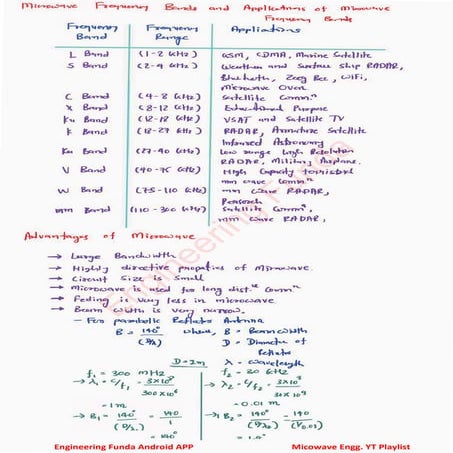 Microwave Frequency Bands and Applications of Microwave
Frequency Bands
Frequency Band Frequency Range Applications
L Band (1-2 GHz) GSM, CDMA, Marine Satellite
S Band (2-4 GHz) Weather and Surface Ship RADAR,
Bluetooth, Zeeg Bee, WiFi,
Microwave Oven
C Band (4-8 GHz) Satellite Commⁿ
X Band (8-12 GHz) Educational Purpose
Ku Band (12-18 GHz) VSAT and Satellite TV
K Band (18-27 GHz) RADAR, Satellite
Infrared Astronomy
Ka Band (27-40 GHz) Low range High Resolution
RADAR, Military Airplane.
V Band (40-75 GHz) High Capacity
mm wave Commⁿ
W Band (75-110 GHz) mm wave RADAR,
Research
mm Band (110-300 GHz) Satellite Commⁿ,
mm wave RADAR,
Engineering Funda
Advantages of Microwave
→ Large Bandwidth
→ Highly directive properties of Microwave.
→ Circuit Size is Small
→ Microwave is used for long dist.ᶜᵉ Commⁿ
→ Feding is very less in microwave
→ Beam width is very narrow.
- For parabolic Reflector Antenna
B = 140°/(D/λ) where, B = Beam width
D = Diameter of
Reflector
λ - wavelength
D = 1m
f₁ = 300 MHz f₂ = 30 GHz
→ λ₁ = c/f₁ = 3×10⁸/300×10⁶ → λ₂ = c/f₂ = 3×10⁸/30×10⁹
= 1m = 0.01 m
→ B₁ = 140°/(D/λ₁) = 140/1 → B₂ = 140°/(D/λ₂) = 140/(1/0.01)
= 140° = 1.4°
Engineering Funda Android APP Micowave Engg. YT Playlist